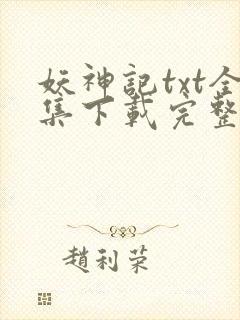 妖神記txt全
集下載完整
趙利榮